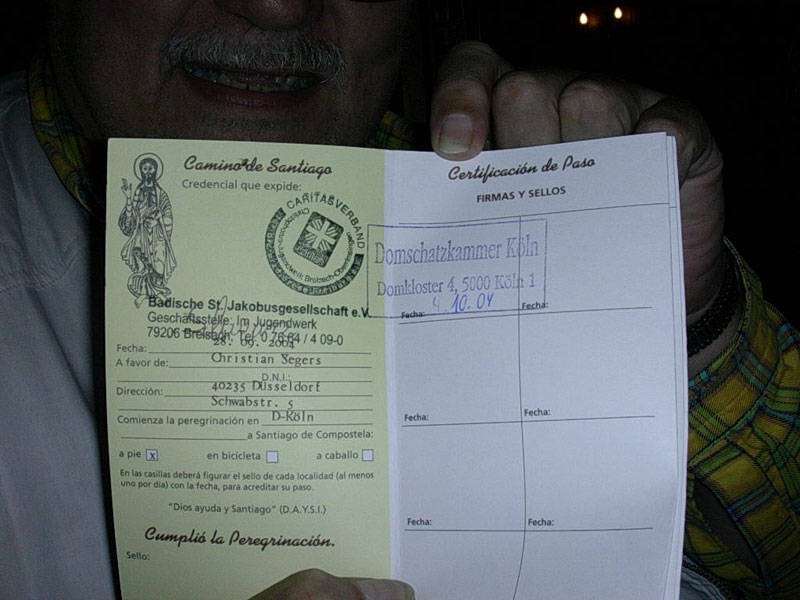 Camino de Santiago
Credencial que expide:
CARITASVERBAND
Christophorus-Jugendwerk Breisach-Oberrimsingen
Badische St. Jakobusgesellschaft e.V.
Geschäftsstelle: Im Jugendwerk
79206 Breisach, Tel 0 76 64 / 4 09-0
Fecha: 28. 09. 2004
A favor de: Christian Segers
D.N.I.:
Dirección: 40235 Düsseldorf
Schwabstr. 5
Comienza la peregrinación en D-Köln
a Santiago de Compostela:
a pie x en bicicleta a caballo
En las casillas deberá figurar el sello de cada localidad (al menos
uno por día) con la fecha, para acreditar su paso.
"Dios ayuda y Santiago" (D.A.Y.S.I.)
Cumplió la Peregrinación.
Sello:
Certificación de Paso
FIRMAS Y SELLOS
Domschatzkammer Köln
Domkloster 4, 5000 Köln 1
4.10.04
Fecha: Fecha:
Fecha: Fecha:
Fecha: Fecha: